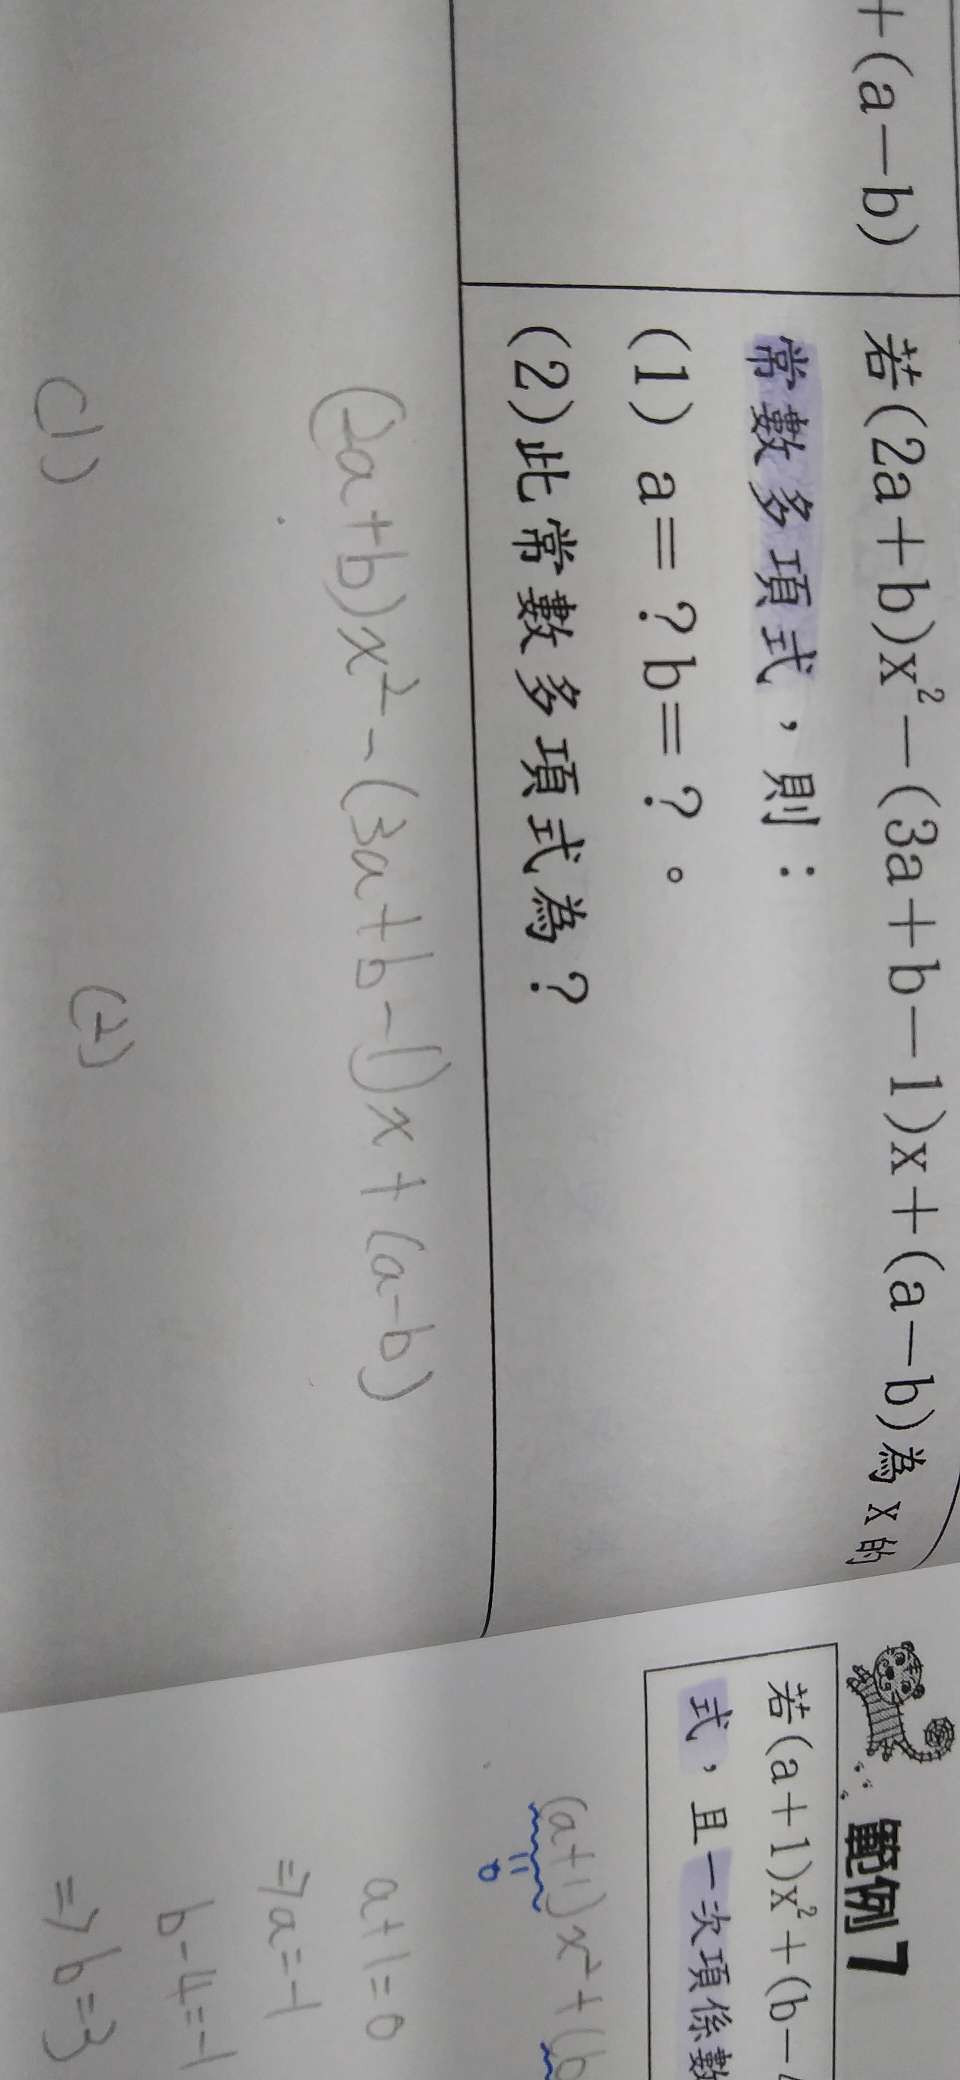 +(a-b)
若(2a+b)x²-(3a+b-1)x+(a-b)為x的
常數多項式，則：
(1) a=?b=?。
(2)此常數多項式為?
(2a+b)x²-(3a+b-1)x+(a-b)
(1)
(2)
範例7
若(a+1)x²+(b-
式，且一次項係數
(a+1)x²+(b
0
a+1=0
=>a=-1
b-4=-1
=>b=3